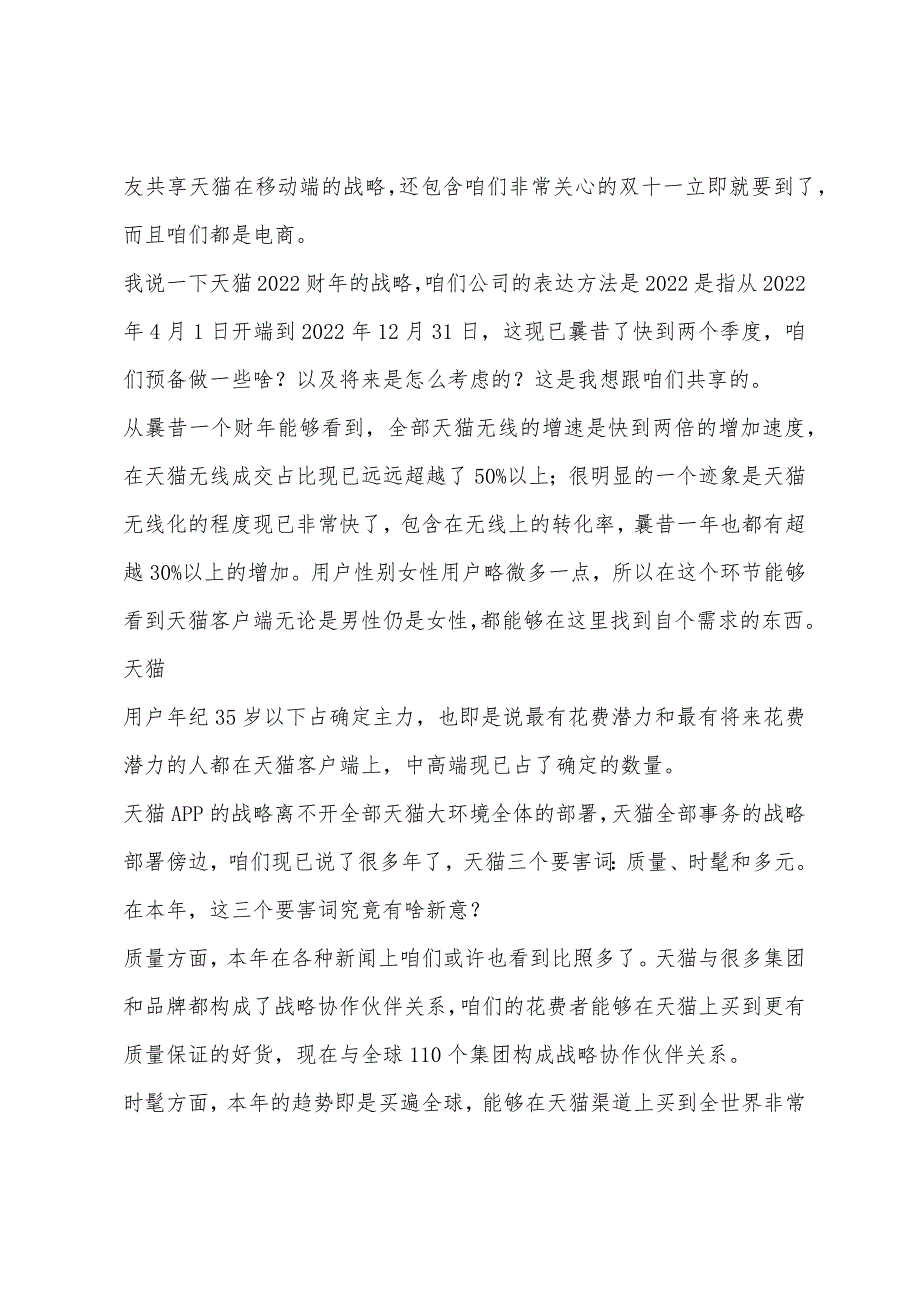 友共享天猫在移动端的战略,还包含咱们非常关心的双十一立即就要到了,
而且咱们都是电商。
我说一下天猫 2022 财年的战略,咱们公司的表达方法是 2022 是指从 2022
年 4 月 1 日开端到 2022 年 12 月 31 日，这现已曩昔了快到两个季度，咱
们预备做一些啥？以及将来是怎么考虑的？这是我想跟咱们共享的。
从曩昔一个财年能够看到，全部天猫无线的增速是快到两倍的增加速度，
在天猫无线成交占比现已远远超越了 50%以上；很明显的一个迹象是天猫
无线化的程度现已非常快了，包含在无线上的转化率，曩昔一年也都有超
越 30%以上的增加。用户性别女性用户略微多一点，所以在这个环节能够
看到天猫客户端无论是男性仍是女性,都能够在这里找到自个需求的东西。
天猫
用户年纪 35 岁以下占确定主力，也即是说最有花费潜力和最有将来花费
潜力的人都在天猫客户端上，中高端现已占了确定的数量。
天猫 APP 的战略离不开全部天猫大环境全体的部署,天猫全部事务的战略
部署傍边，咱们现已说了很多年了，天猫三个要害词：质量、时髦和多元。
在本年，这三个要害词究竟有啥新意？
质量方面,本年在各种新闻上咱们或许也看到比照多了。天猫与很多集团
和品牌都构成了战略协作伙伴关系,咱们的花费者能够在天猫上买到更有
质量保证的好货，现在与全球 110 个集团构成战略协作伙伴关系。
时髦方面,本年的趋势即是买遍全球,能够在天猫渠道上买到全世界非常